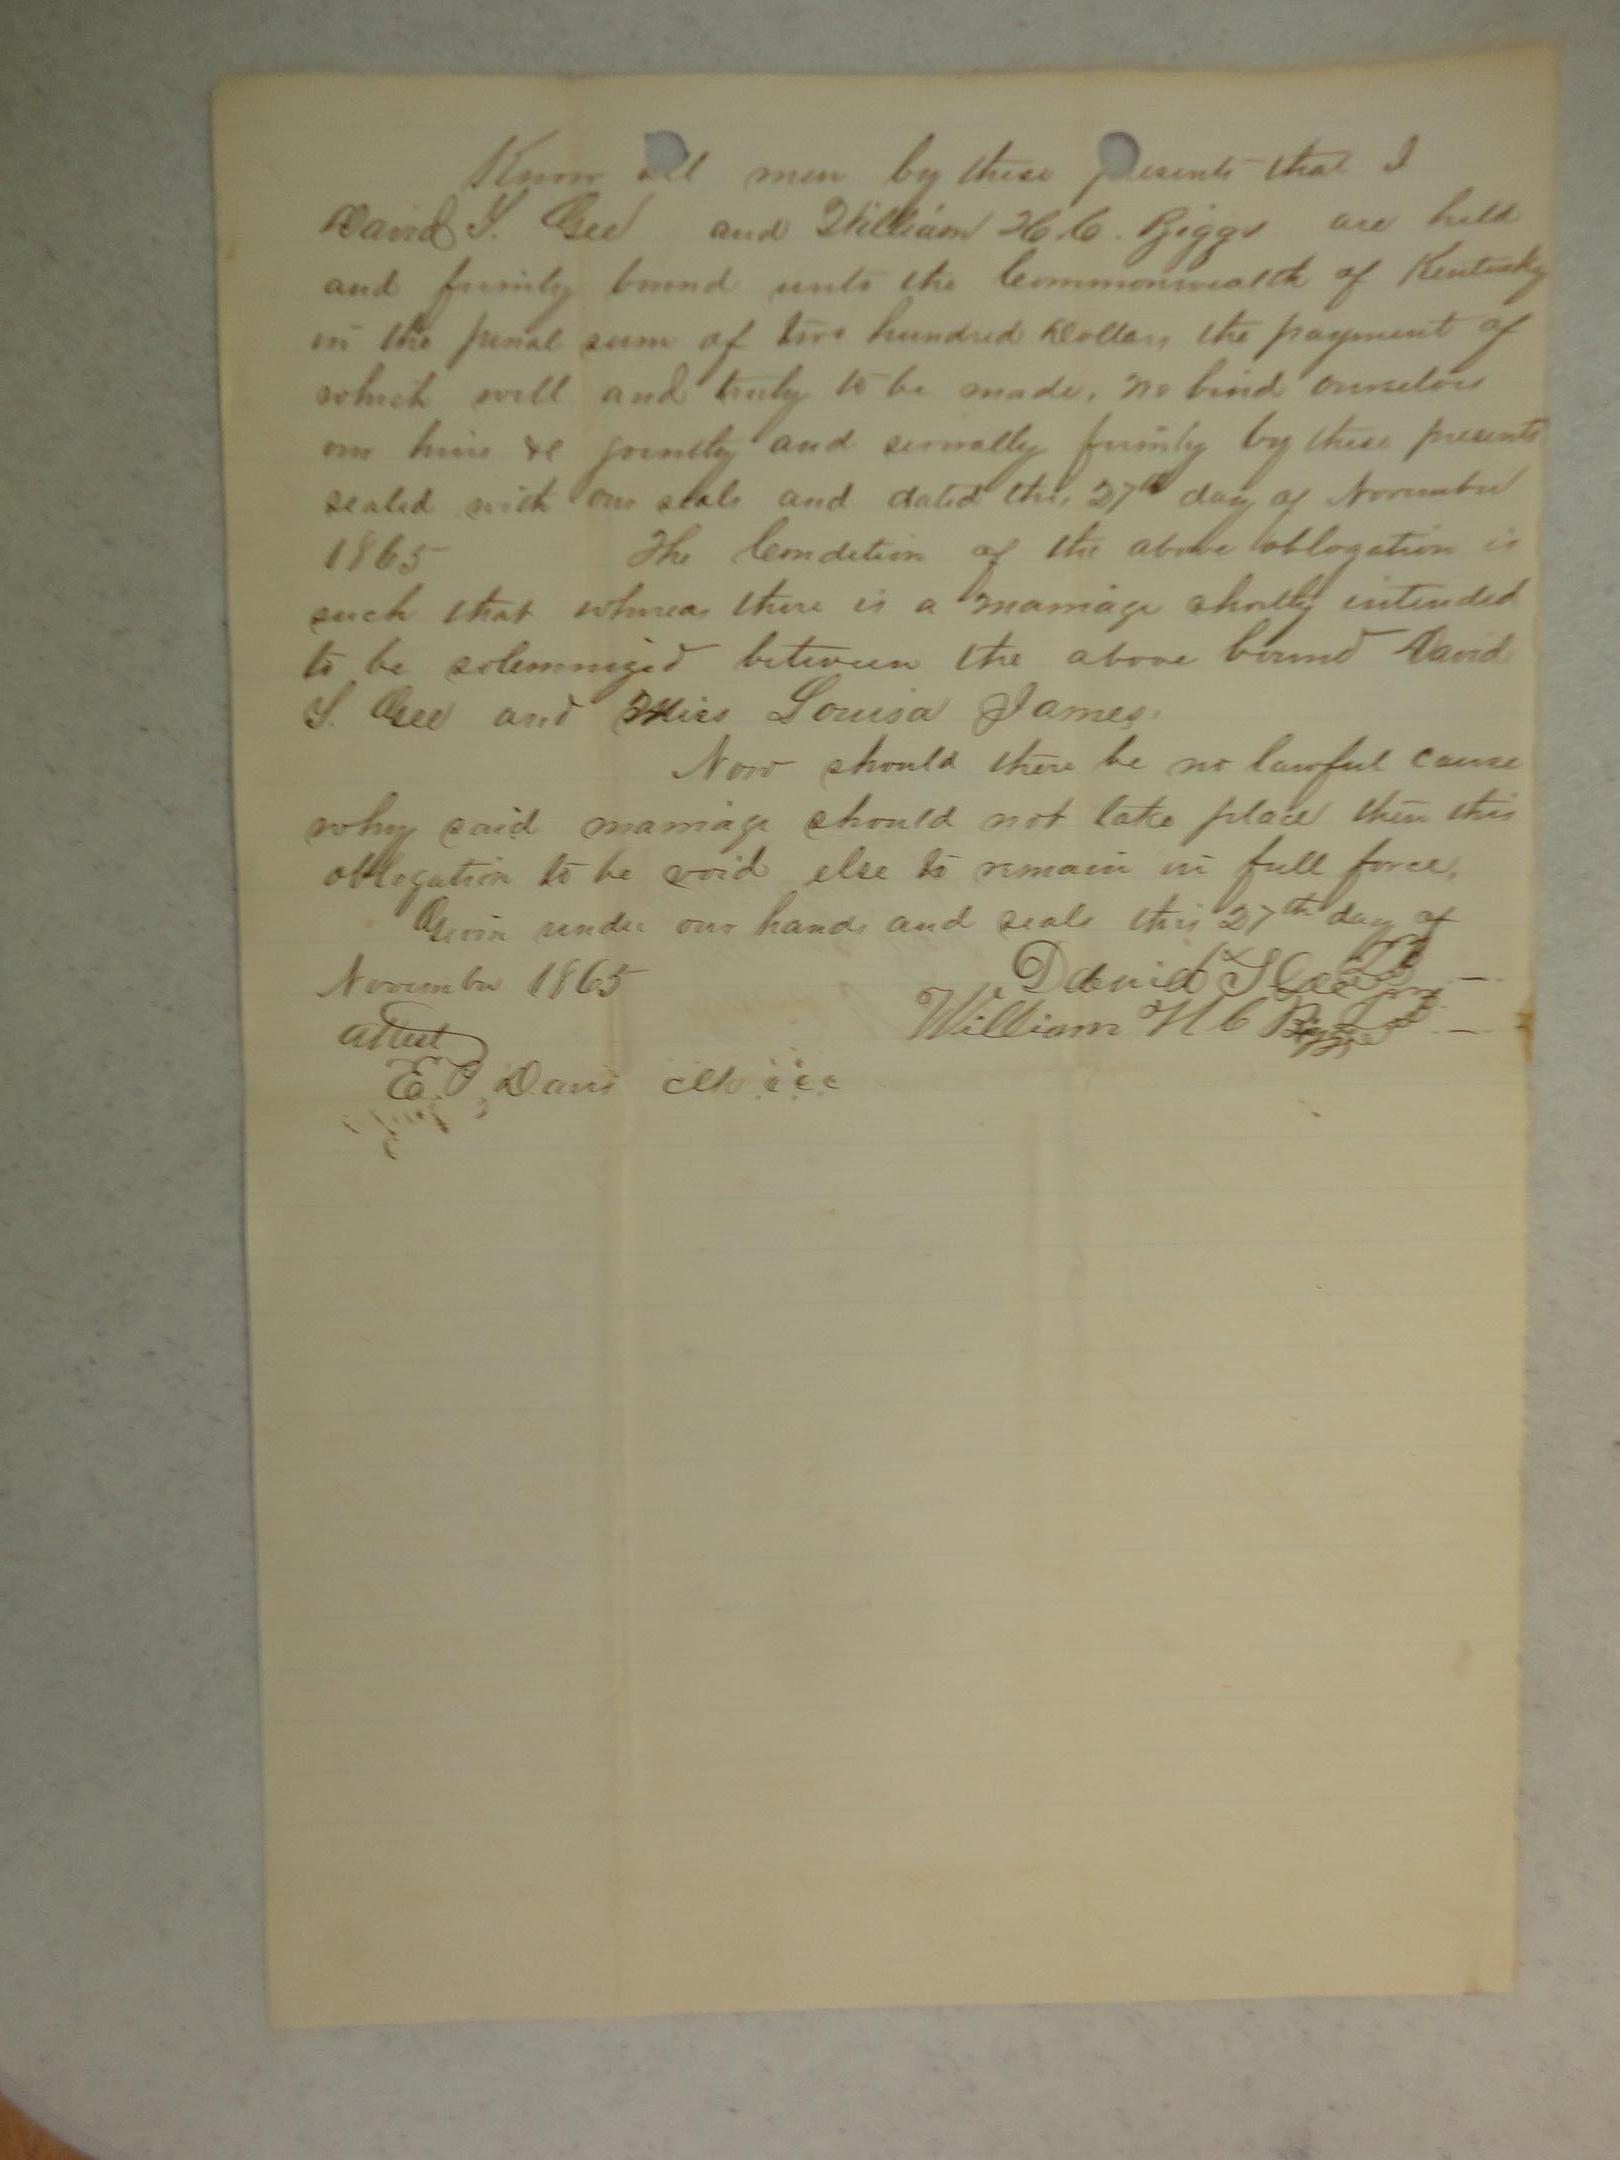 Know all men by these presents that I
David S. Gee and William H. C. Biggs are held
and firmly bound unto the Commonwealth of Kentucky
in the penal sum of two hundred Dollars the payment of
which well and truly to be made, we bind ourselves
our heirs &c jointly and severally firmly by these presents
sealed with our seals and dated this 27th day of November
1865 The Condition of the above obligation is
such that whereas there is a marriage shortly intended
to be solemnized between the above bound David
S. Gee and Miss Louisa James.
Now should there be no lawful cause
why said marriage should not take place then this
obligation to be void else to remain in full force,
Given under our hands and seals this 27th day of
November 1865 David S Gee
attest William H C Biggs
E. P. Davis